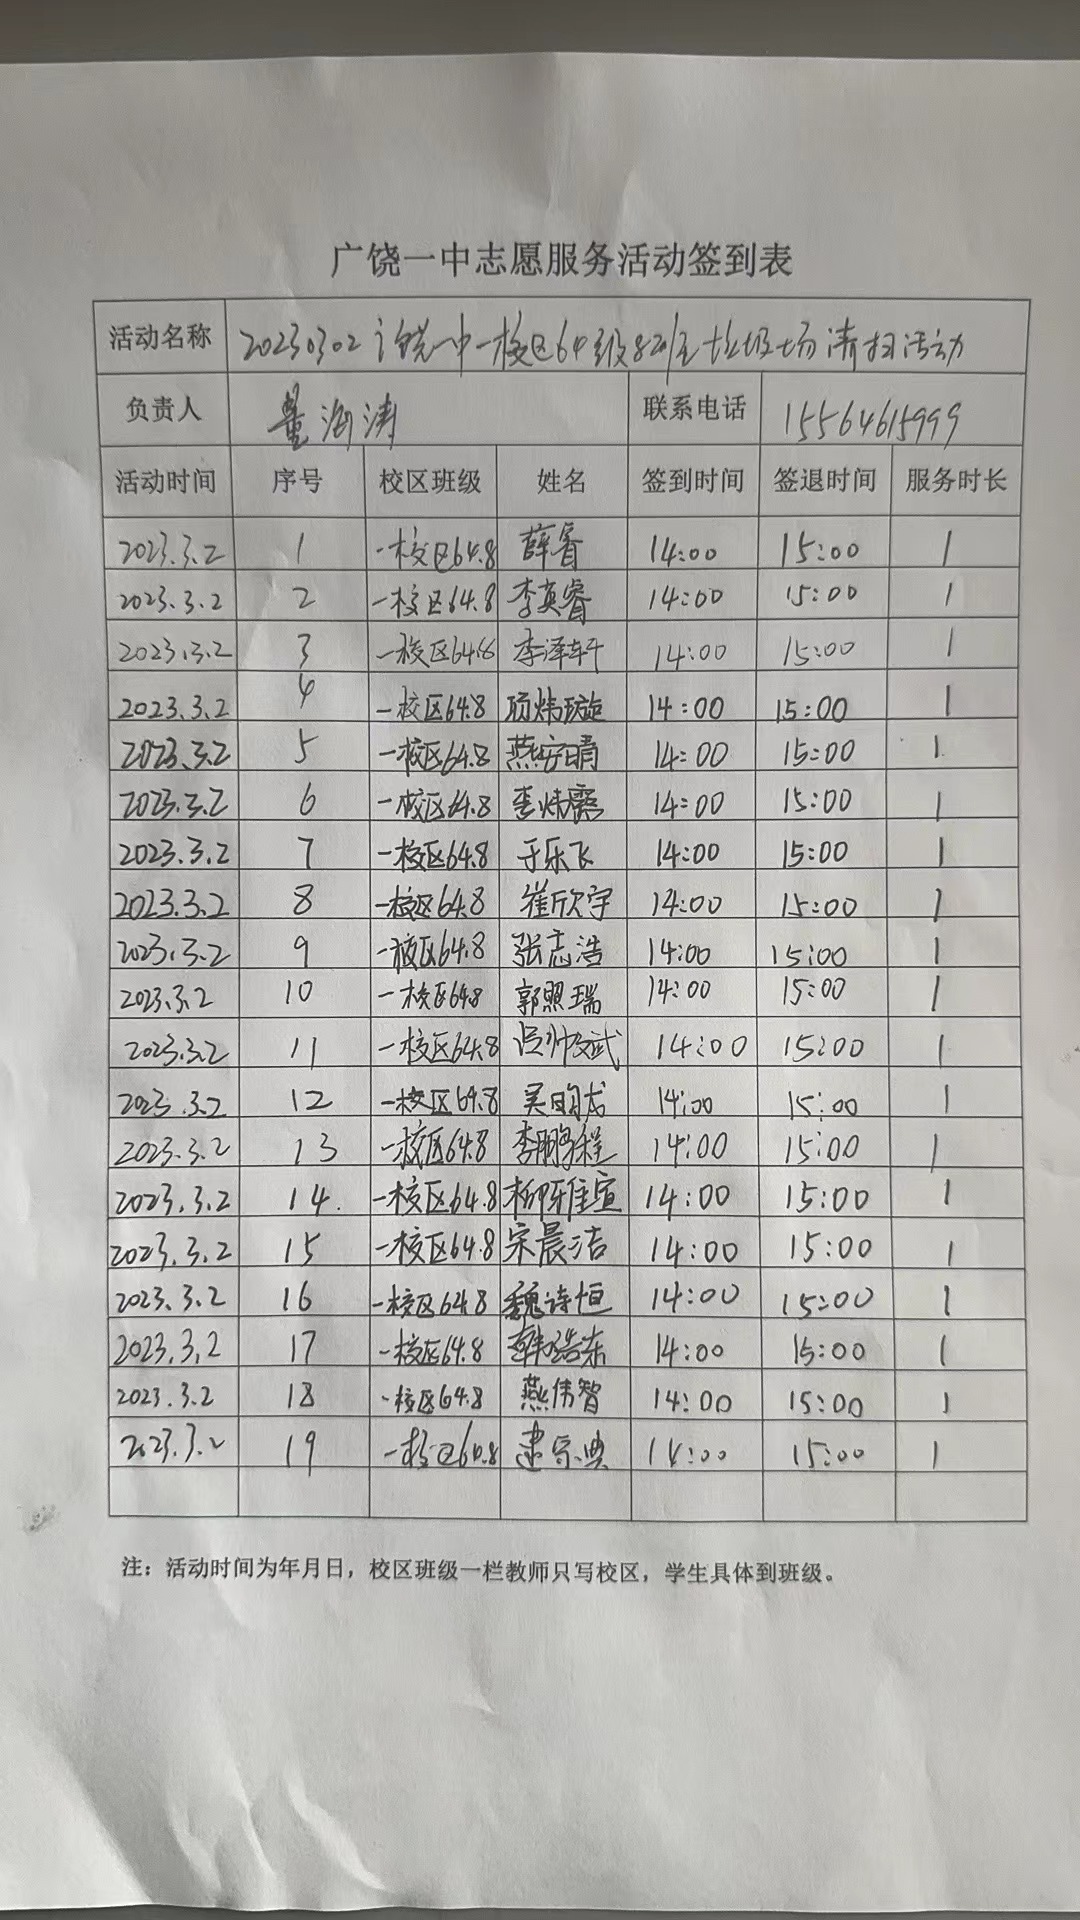 广饶一中志愿服务活动签到表
活动名称 20230302广饶一中一校区64级8班垃圾场清扫活动
负责人 董海涛 联系电话 15564615999
活动时间 序号 校区班级 姓名 签到时间 签退时间 服务时长
2023.3.2 1 一校区64.8 薛睿 14:00 15:00 1
2023.3.2 2 一校区64.8 李英睿 14:00 15:00 1
2023.3.2 3 一校区64.8 李泽轩 14:00 15:00 1
2023.3.2 4 一校区64.8 项炜璇 14:00 15:00 1
2023.3.2 5 一校区64.8 燕安晴 14:00 15:00 1
2023.3.2 6 一校区64.8 14:00 15:00 1
2023.3.2 7 一校区64.8 于乐飞 14:00 15:00 1
2023.3.2 8 一校区64.8 崔欣宇 14:00 15:00 1
2023.3.2 9 一校区64.8 张志浩 14:00 15:00 1
2023.3.2 10 一校区64.8 郭照瑞 14:00 15:00 1
2023.3.2 11 一校区64.8 14:00 15:00 1
2023.3.2 12 一校区64.8 吴明龙 14:00 15:00 1
2023.3.2 13 一校区64.8 李鹏程 14:00 15:00 1
2023.3.2 14. 一校区64.8 14:00 15:00 1
2023.3.2 15 一校区64.8 宋晨洁 14:00 15:00 1
2023.3.2 16 一校区64.8 魏诗恒 14:00 15:00 1
2023.3.2 17 一校区64.8 韩浩东 14:00 15:00 1
2023.3.2 18 一校区64.8 燕伟智 14:00 15:00 1
2023.3.2 19 一校区64.8 14:00 15:00 1
注：活动时间为年月日，校区班级一栏教师只写校区，学生具体到班级。